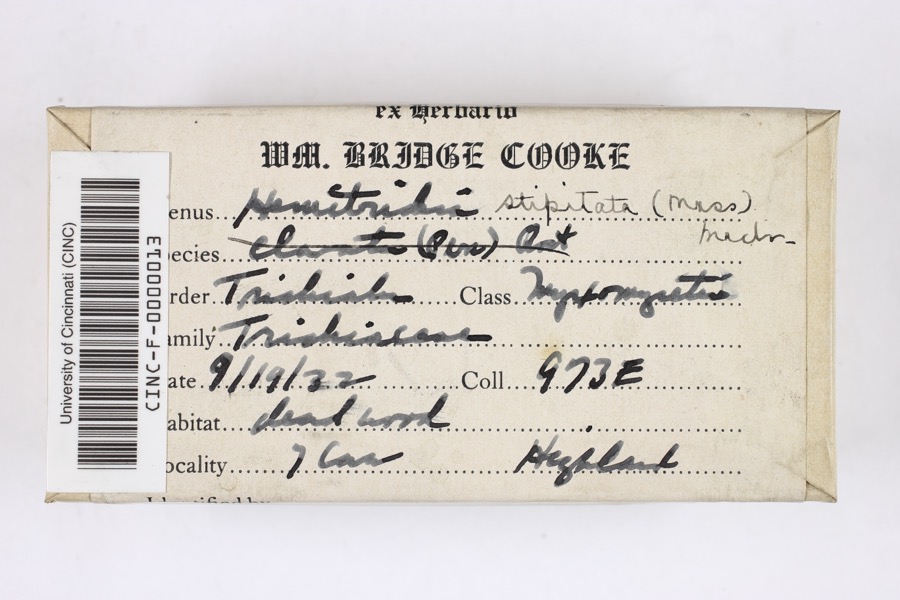 ex Herbario
WM. BRIDGE COOKE
enus.. Hemitrichia stipitata (Mass)
Macbr
ecies.. clavata (Pers) Rost
rder Trichiales Class. Myxomycetes
amily Trichiaceae
ate 9/19/32 Coll 973E
abitat.. dead wood
ocality.. Highland
Identified by
University of Cincinnati (CINC)
CINC-F-0000013